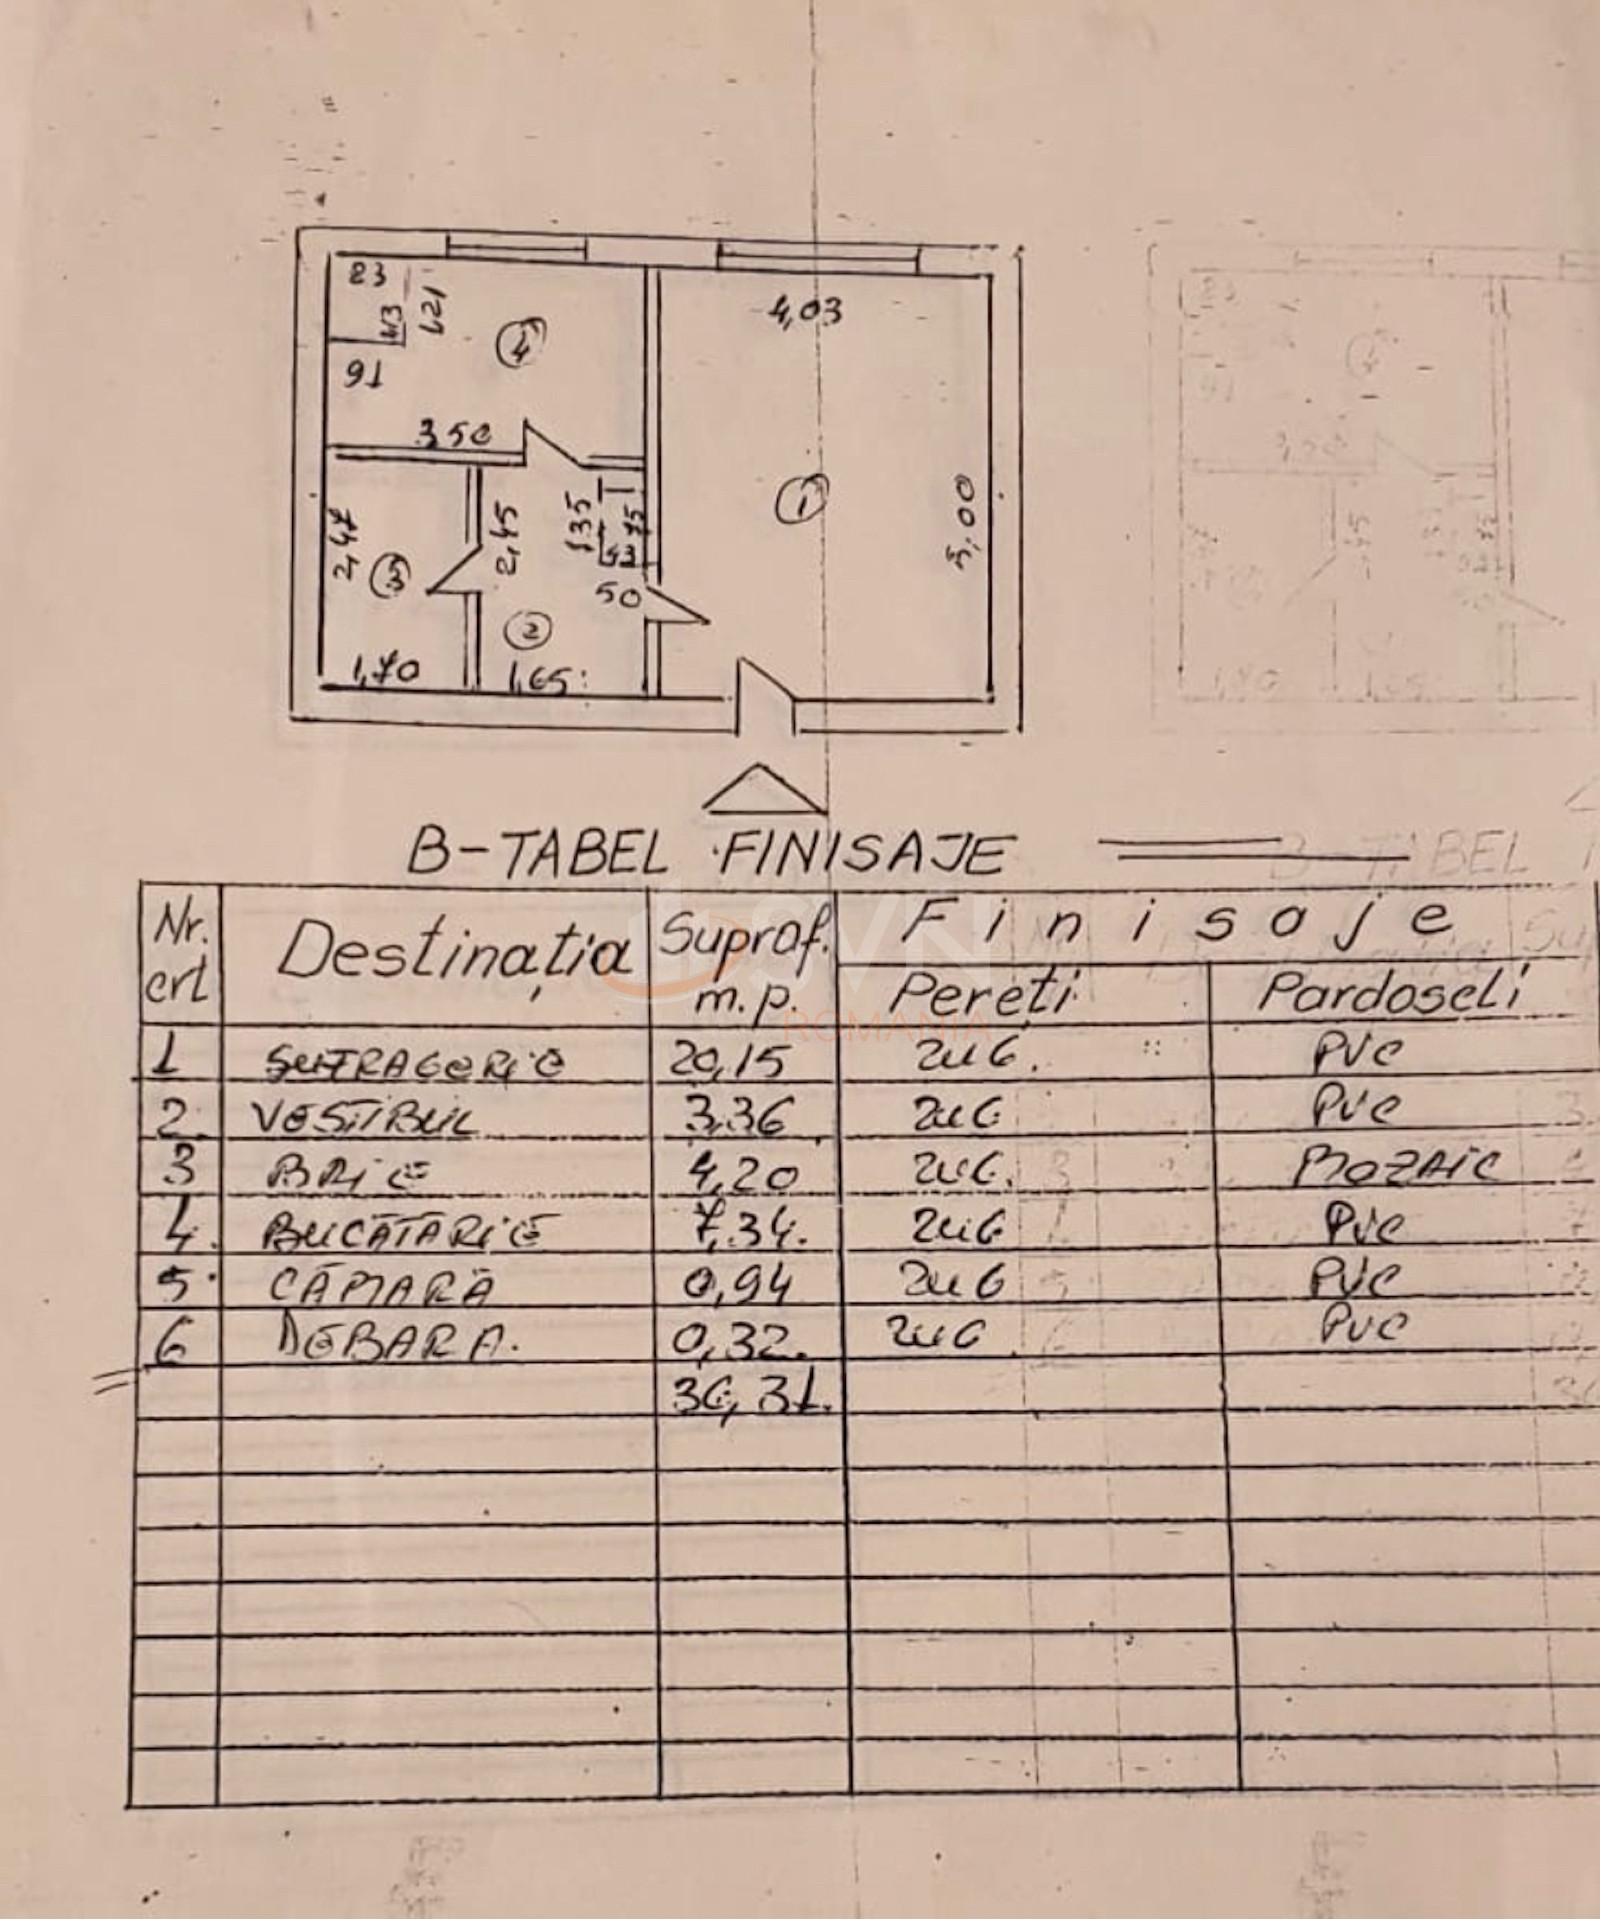 23
4,03
43
1,21
4
91
3,50
1
5,00
2,47
2,45
1,35
75
43
3
50
2
1,70
1,65
B-TABEL FINISAJE
Nr. crt
Destinația
Supraf. m.p.
Finisaje
Pereți
Pardoseli
1 SUFRAGERIE 20,15 ZUG. PVC
2. VESTIBUL 3,36 ZUG PVC
3 BAIE 4,20 ZUG. MOZAIC
4. BUCĂTĂRIE 7,34. ZUG PVC
5. CĂMARĂ 0,94 ZUG PVC
6 DEBARA. 0,32. ZUG PVC
36,31.
SVN
ROMANIA